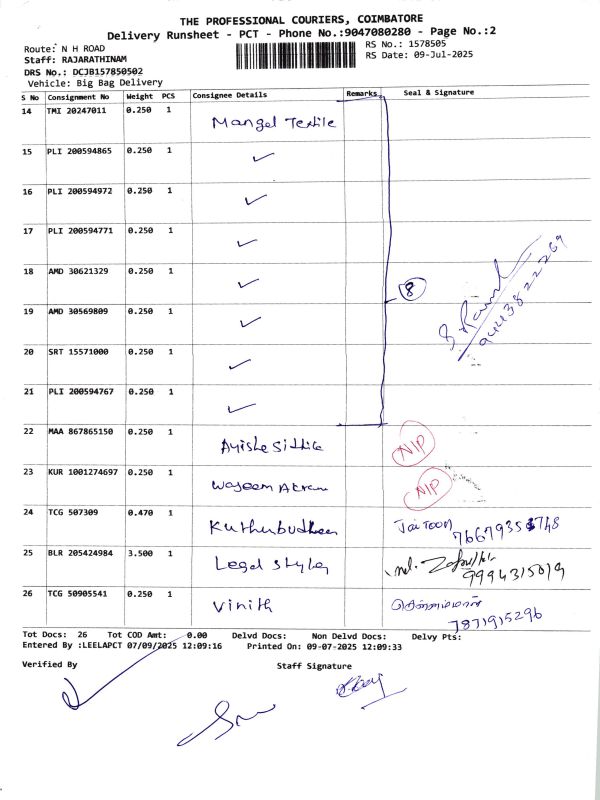 THE PROFESSIONAL COURIERS, COIMBATORE
Delivery Runsheet - PCT - Phone No.:9047080280 - Page No.:2
Route: N H ROAD
RS No.: 1578505
Staff: RAJARATHINAM
RS Date: 09-Jul-2025
DRS No.: DCJB157850502
Vehicle: Big Bag Delivery
S No Consignment No Weight PCS Consignee Details Remarks Seal & Signature
14 TMI 20247011 0.250 1 Mangal Textile
15 PLI 200594865 0.250 1 ✓
16 PLI 200594972 0.250 1 ✓
17 PLI 200594771 0.250 1 ✓
18 AMD 30621329 0.250 1 ✓
8
9443822269
19 AMD 30569809 0.250 1 ✓
20 SRT 15571000 0.250 1 ✓
21 PLI 200594767 0.250 1 ✓
22 MAA 867865150 0.250 1 Ayisha Siddika NIP
23 KUR 1001274697 0.250 1 Waseem Akram NIP
24 TCG 507309 0.470 1 Kuthubudheen Jaitoon
25 BLR 205424984 3.500 1 Legal Styles 9994315019
26 TCG 50905541 0.250 1 Vinith
7871915296
Tot Docs: 26 Tot COD Amt: 0.00 Delvd Docs: Non Delvd Docs: Delvy Pts:
Entered By :LEELAPCT 07/09/2025 12:09:16 Printed On: 09-07-2025 12:09:33
Verified By Staff Signature